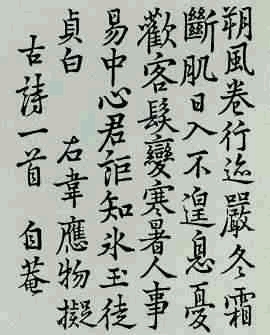 朔風卷行迹嚴冬霜
斷肌日入不遑息憂
歡客髮變寒暑人事
易中心君詎知冰玉徒
貞白　右韋應物擬
古詩一首　自菴